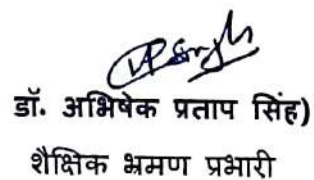 डॉ. अभिषेक प्रताप सिंह)
शैक्षिक भ्रमण प्रभारी